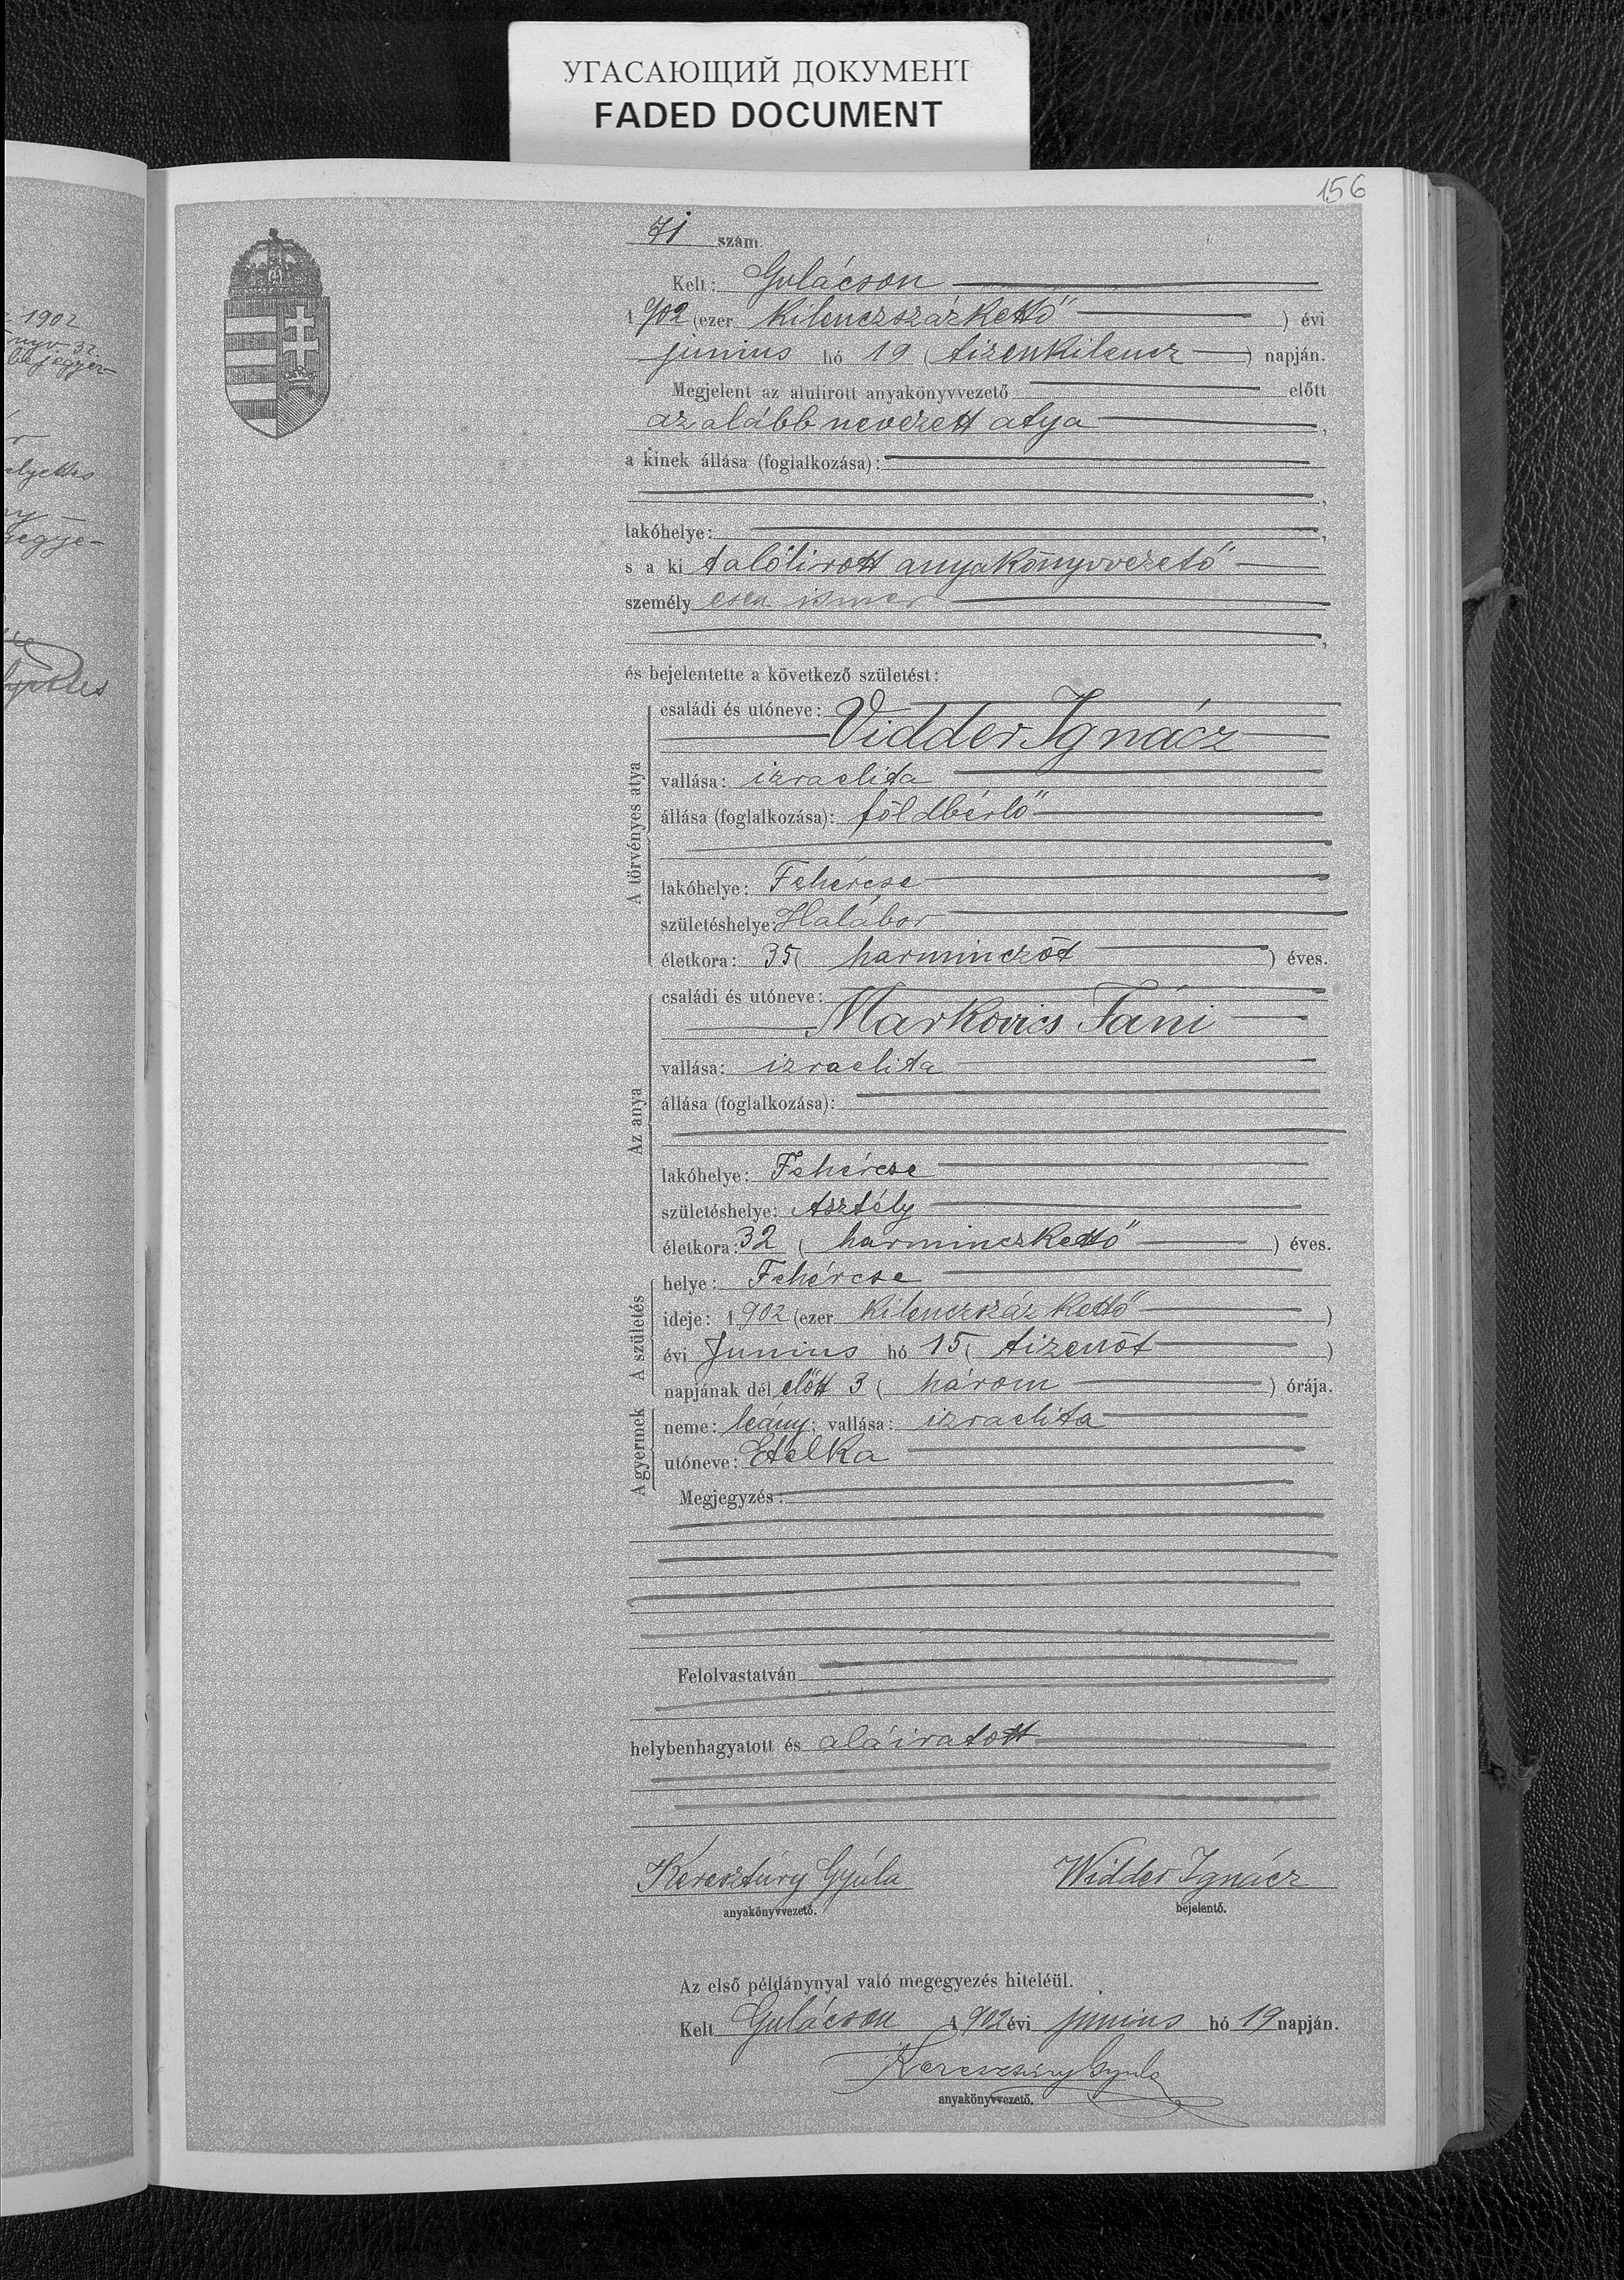 УГАСАЮЩИЙ ДОКУМЕНТ
FADED DOCUMENT
156
1902
nyv 32.
elyettes
71 szám.
Kelt: Gulácson
1902 (ezer kilenczszázkettő) évi
junius hó 19 (tizenkilencz) napján.
Megjelent az alulirott anyakönyvvezető előtt
az alább nevezett atya,
a kinek állása (foglalkozása):
lakóhelye:
s a kit alólirott anyakönyvvezető
személyesen ismer
és bejelentette a következő születést:
A törvényes atya
családi és utóneve:
Vidder Ignácz
vallása: izraelita
állása (foglalkozása): földbérlő
lakóhelye: Fehércse
születéshelye: Halábor
életkora: 35 (harminczöt) éves.
Az anya
családi és utóneve:
Markovics Fáni
vallása: izraelita
állása (foglalkozása):
lakóhelye: Fehércse
születéshelye: Asztély
életkora: 32 (harminczkettő) éves.
A születés
helye: Fehércse
ideje: 1902 (ezer kilenczszáz kettő)
évi Junius hó 15 (tizenöt)
napjának dél előtt 3 (három) órája.
A gyermek
neme: leány; vallása: izraelita
utóneve: Etelka
Megjegyzés:
Felolvastatván
helybenhagyatott és aláiratott
Keresztúry Gyúla Widder Ignácz
anyakönyvvezető. bejelentő.
Az első példánynyal való megegyezés hiteléül.
Kelt Gulácson 1902 évi junius hó 19 napján.
Keresztúry Gyula
anyakönyvvezető.